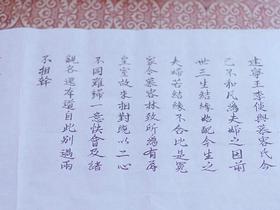 建寧王李倓與慕容氏今
已不和凡為夫婦之因前
世三生結緣始配今生之
夫婦若結緣不合比是冤
家今慕容林致所為有辱
皇室故來相對既以二心
不同難歸一意快會及諸
親各還本道自此别過兩
不相幹